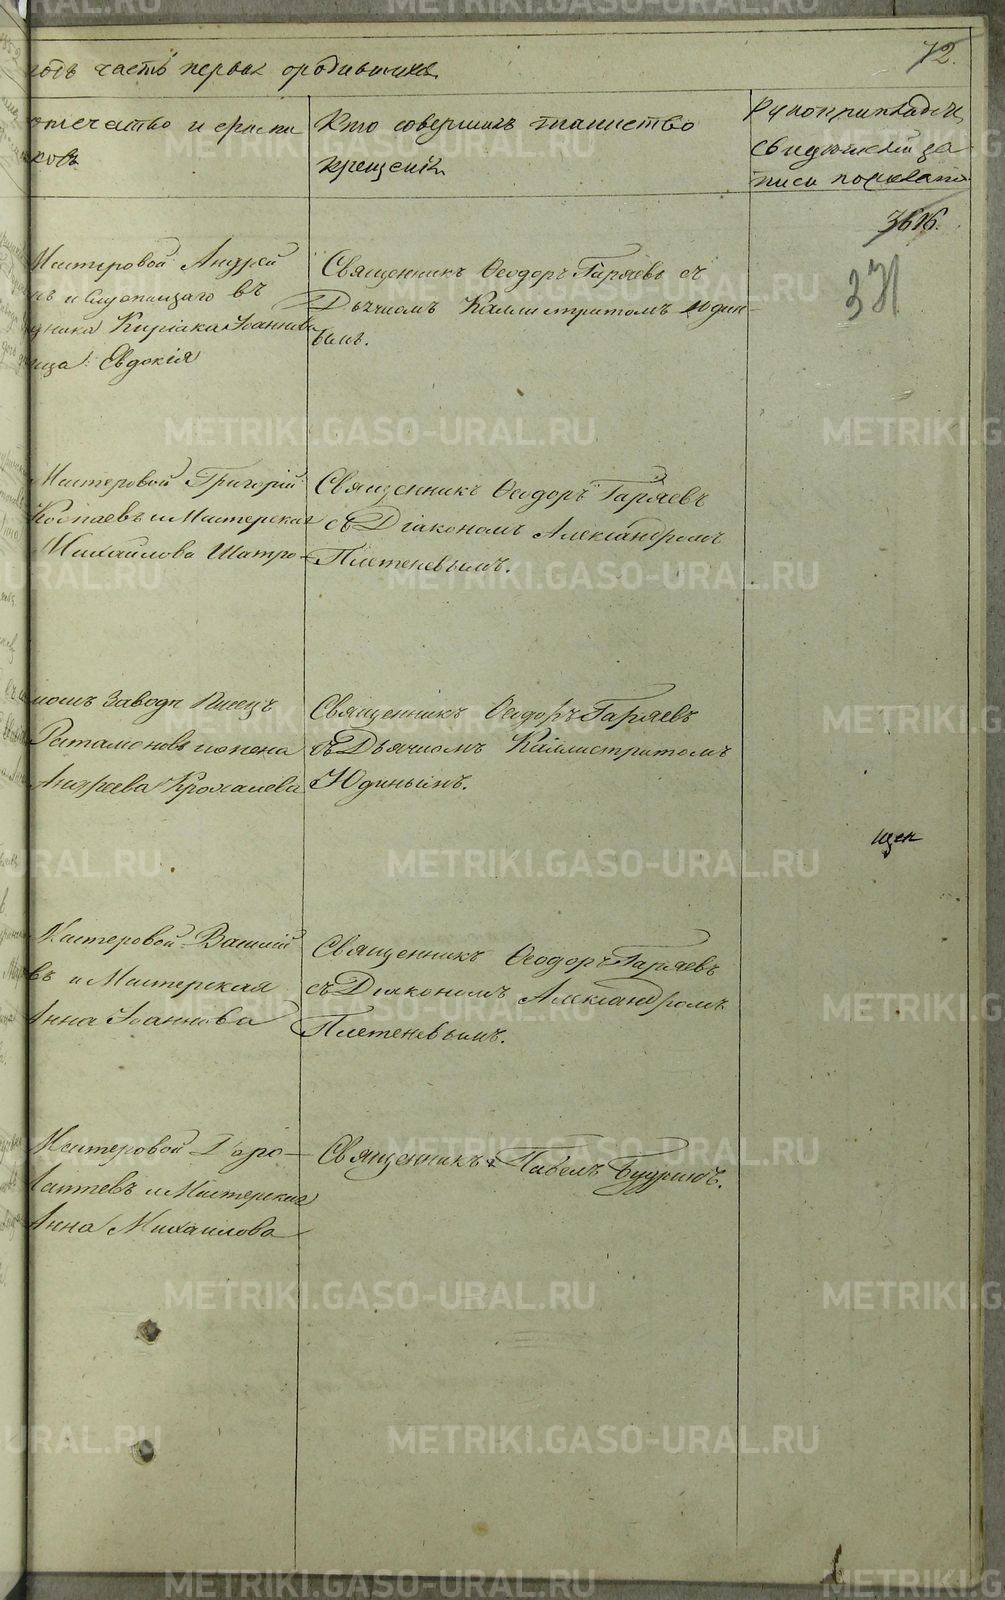 72.
годъ часть первая о родившихся
отечество и фамилия
ковъ
Кто совершилъ таинство
крещенія
Рукоприкладст
свидѣтелей за
писи по желанію
3616.
371
Мастеровой Андрей
въ и Служащаго въ
дника Киріака Іоаннова
ица Евдокія
Священникъ Ѳеодоръ Гаряевъ съ
Дьячкомъ Каллистратомъ Юдин-
ымъ.
Мастеровой Григорій
Колпаевъ и Мастерская
Михайлова Шатро-
Священникъ Ѳеодоръ Гаряевъ
съ Діакономъ Александромъ
Плетеневымъ.
номъ Заводѣ Писецъ
Артамоновъ и жена
Андреева Крохалева
Священникъ Ѳеодоръ Гаряевъ
съ Дьячкомъ Каллистратомъ
Юдинымъ.
щен
Мастеровой Василій
въ и Мастерская
Анна Іоаннова
Священникъ Ѳеодоръ Гаряевъ
съ Діакономъ Александромъ
Плетеневымъ.
Мастеровой
Лаптевъ и Мастерская
Анна Михаилова
Священникъ Павелъ Будринъ.
METRIKI.GASO-URAL.RU